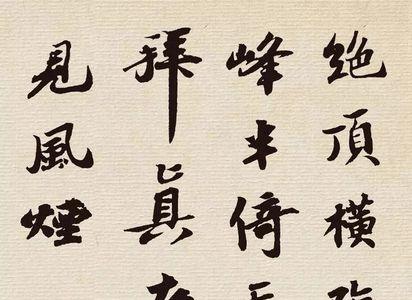 絶頂橫
峰半倚
拜真
見風煙